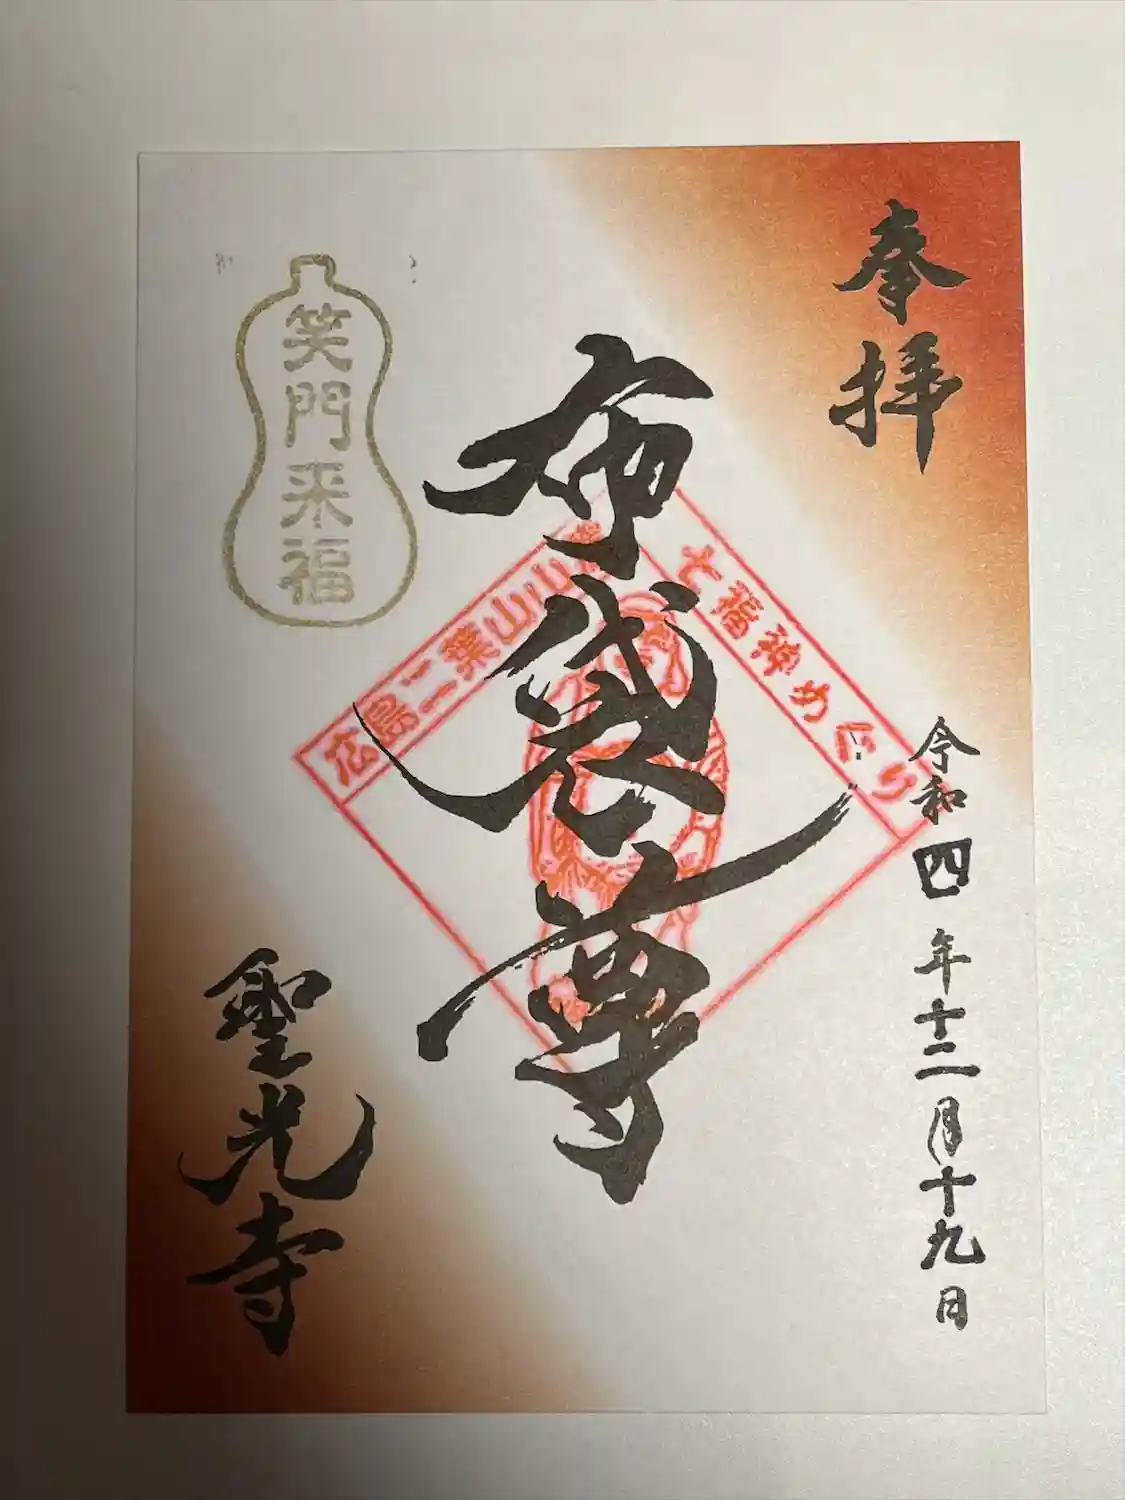 奉拝
令和四年十二月十九日
七福神めぐり
広島二葉山山
布袋尊
笑門来福
聖光寺